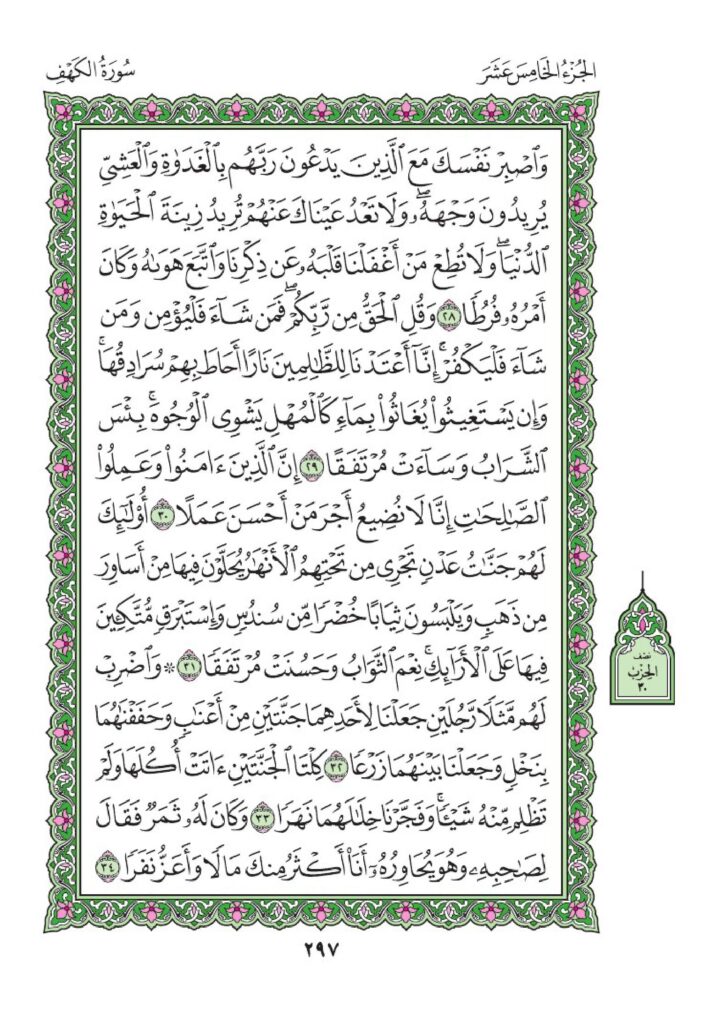 الجُزْءُ الخَامِسَ عَشَرَ
سُورَةُ الكَهْفِ
وَٱصْبِرْ نَفْسَكَ مَعَ ٱلَّذِينَ يَدْعُونَ رَبَّهُم بِٱلْغَدَوٰةِ وَٱلْعَشِىِّ
يُرِيدُونَ وَجْهَهُۥۖ وَلَا تَعْدُ عَيْنَاكَ عَنْهُمْ تُرِيدُ زِينَةَ ٱلْحَيَوٰةِ
ٱلدُّنْيَاۖ وَلَا تُطِعْ مَنْ أَغْفَلْنَا قَلْبَهُۥ عَن ذِكْرِنَا وَٱتَّبَعَ هَوَىٰهُ وَكَانَ
أَمْرُهُۥ فُرُطًا ٢٨ وَقُلِ ٱلْحَقُّ مِن رَّبِّكُمْۖ فَمَن شَآءَ فَلْيُؤْمِن وَمَن
شَآءَ فَلْيَكْفُرْۚ إِنَّآ أَعْتَدْنَا لِلظَّـٰلِمِينَ نَارًا أَحَاطَ بِهِمْ سُرَادِقُهَاۚ
وَإِن يَسْتَغِيثُوا۟ يُغَاثُوا۟ بِمَآءٍ كَٱلْمُهْلِ يَشْوِى ٱلْوُجُوهَۚ بِئْسَ
ٱلشَّرَابُ وَسَآءَتْ مُرْتَفَقًا ٢٩ إِنَّ ٱلَّذِينَ ءَامَنُوا۟ وَعَمِلُوا۟
ٱلصَّـٰلِحَـٰتِ إِنَّا لَا نُضِيعُ أَجْرَ مَنْ أَحْسَنَ عَمَلًا ٣٠ أُو۟لَـٰٓئِكَ
لَهُمْ جَنَّـٰتُ عَدْنٍ تَجْرِى مِن تَحْتِهِمُ ٱلْأَنْهَـٰرُ يُحَلَّوْنَ فِيهَا مِنْ أَسَاوِرَ
مِن ذَهَبٍ وَيَلْبَسُونَ ثِيَابًا خُضْرًا مِّن سُندُسٍ وَإِسْتَبْرَقٍ مُّتَّكِـِٔينَ
فِيهَا عَلَى ٱلْأَرَآئِكِۚ نِعْمَ ٱلثَّوَابُ وَحَسُنَتْ مُرْتَفَقًا ٣١ ۞ وَٱضْرِبْ
لَهُم مَّثَلًا رَّجُلَيْنِ جَعَلْنَا لِأَحَدِهِمَا جَنَّتَيْنِ مِنْ أَعْنَـٰبٍ وَحَفَفْنَـٰهُمَا
بِنَخْلٍ وَجَعَلْنَا بَيْنَهُمَا زَرْعًا ٣٢ كِلْتَا ٱلْجَنَّتَيْنِ ءَاتَتْ أُكُلَهَا وَلَمْ
تَظْلِم مِّنْهُ شَيْـًٔاۚ وَفَجَّرْنَا خِلَـٰلَهُمَا نَهَرًا ٣٣ وَكَانَ لَهُۥ ثَمَرٌ فَقَالَ
لِصَـٰحِبِهِۦ وَهُوَ يُحَاوِرُهُۥٓ أَنَا۠ أَكْثَرُ مِنكَ مَالًا وَأَعَزُّ نَفَرًا ٣٤
نصف
الحزب
٣٠
٢٩٧